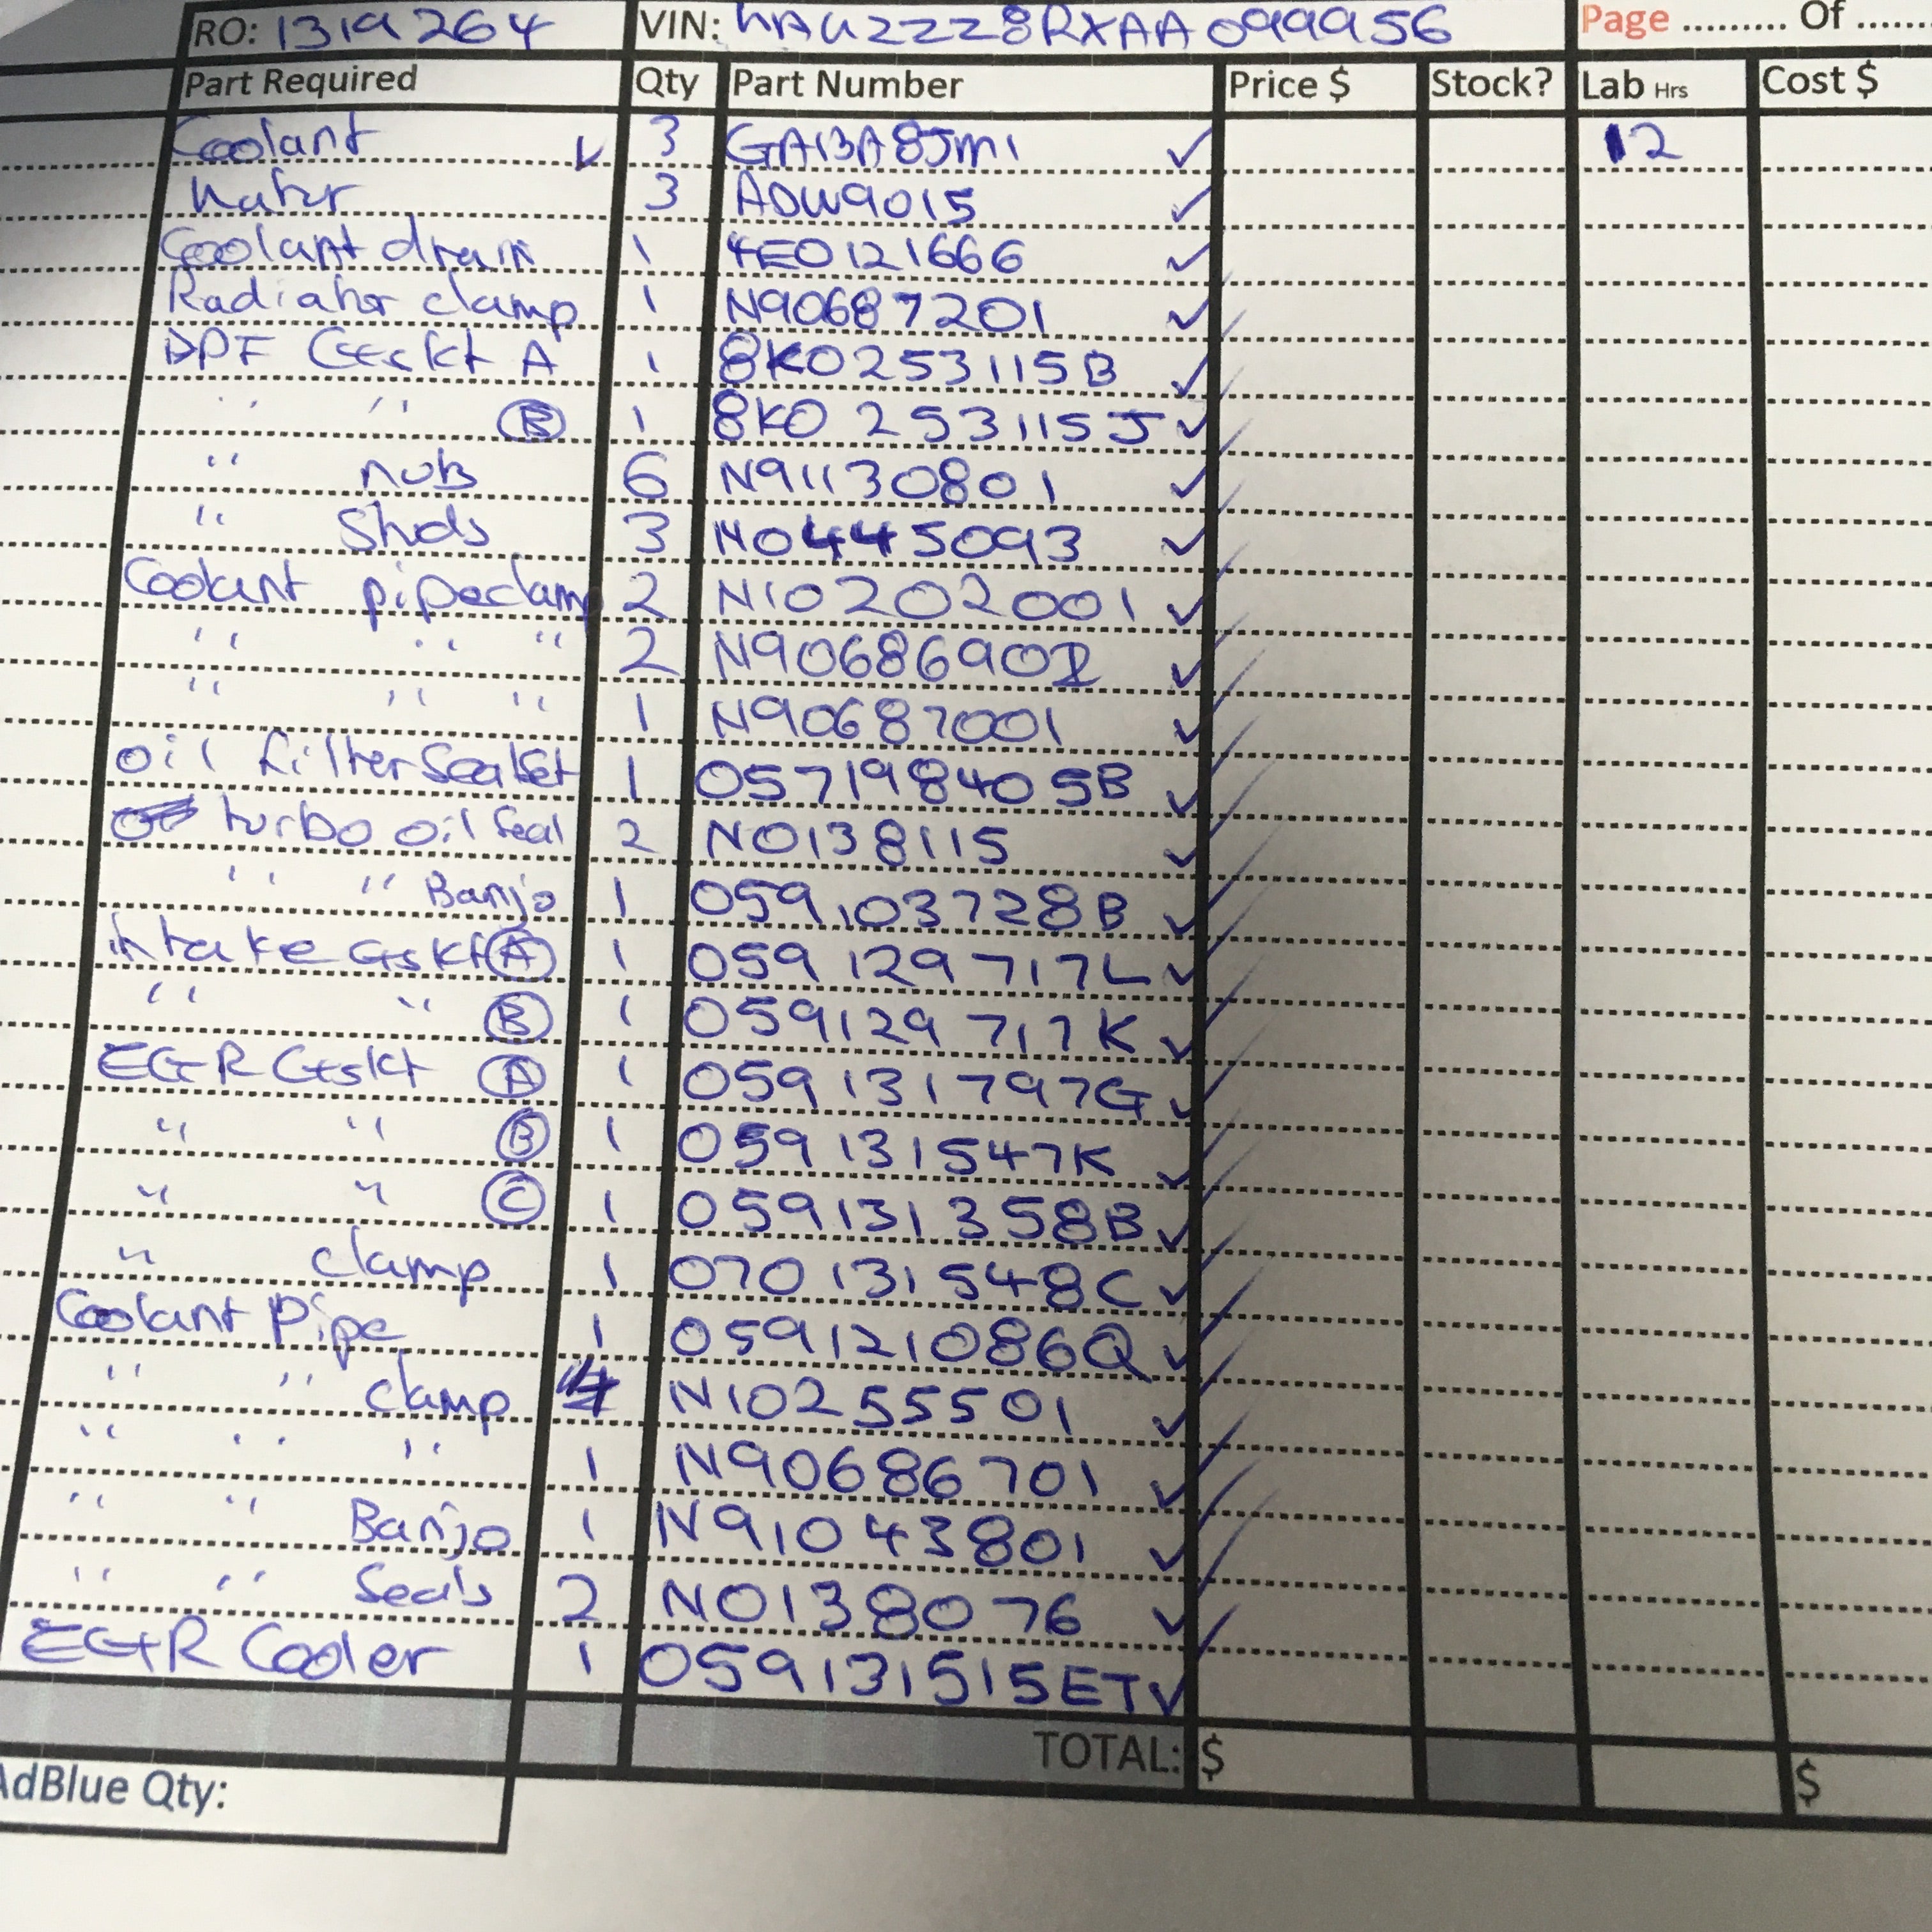 RO: 1319264 VIN: WAUZZZ8RXAA099956 Page ......... Of ......
Part Required Qty Part Number Price $ Stock? Lab Hrs Cost $
Coolant ✓ 3 GA13A8JM1 ✓ 12
Water 3 ADW9015 ✓
Coolant drain 1 4E0121666 ✓
Radiator clamp 1 N90687201 ✓
DPF Gskt A 1 8K0253115B ✓
" " B 1 8K0 253115J ✓
" nuts 6 N91130801 ✓
" Studs 3 N0445093 ✓
Coolant pipe clamp 2 N10202001 ✓
" " " 2 N90686902 ✓
" " " 1 N90687001 ✓
oil filter Seal Set 1 057198405B ✓
turbo oil Seal 2 N0138115 ✓
" " Banjo 1 059103728B ✓
intake Gskt A 1 059129717L ✓
" " B 1 059129717K ✓
EGR Gskt A 1 059131797G ✓
" " B 1 059131547K ✓
" " C 1 059131358B ✓
" clamp 1 070131548C ✓
Coolant Pipe 1 059121086Q ✓
" " clamp 4 N10255501 ✓
" " " 1 N90686701 ✓
" " Banjo 1 N91043801 ✓
" " Seals 2 N0138076 ✓
EGR Cooler 1 059131515ET ✓
TOTAL: $ $
AdBlue Qty: